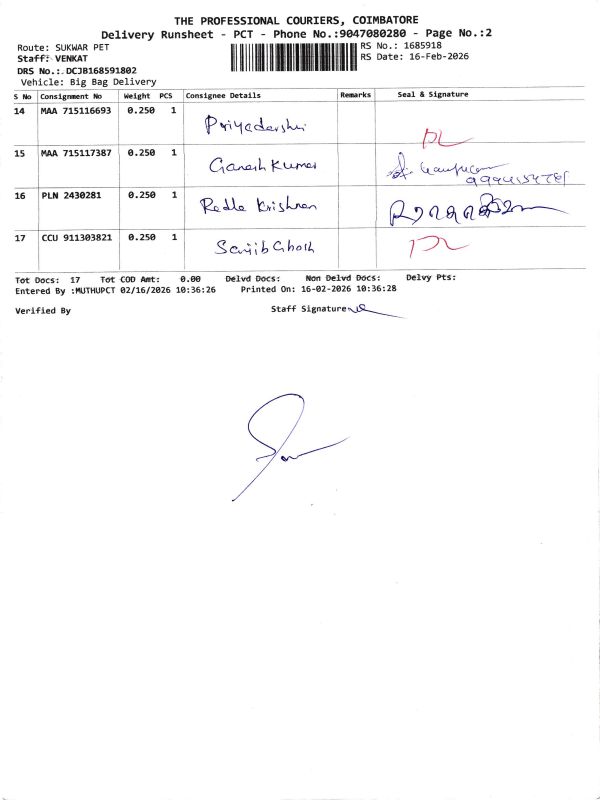 THE PROFESSIONAL COURIERS, COIMBATORE
Delivery Runsheet - PCT - Phone No.:9047080280 - Page No.:2
Route: SUKWAR PET
RS No.: 1685918
Staff: VENKAT
RS Date: 16-Feb-2026
DRS No.: DCJB168591802
Vehicle: Big Bag Delivery
S No Consignment No Weight PCS Consignee Details Remarks Seal & Signature
14 MAA 715116693 0.250 1 Priyadarshni
15 MAA 715117387 0.250 1 Ganesh Kumar
16 PLN 2430281 0.250 1 Radha Krishnan
17 CCU 911303821 0.250 1 Sanjib Ghosh
Tot Docs: 17 Tot COD Amt: 0.00 Delvd Docs: Non Delvd Docs: Delvy Pts:
Entered By :MUTHUPCT 02/16/2026 10:36:26 Printed On: 16-02-2026 10:36:28
Verified By Staff Signature